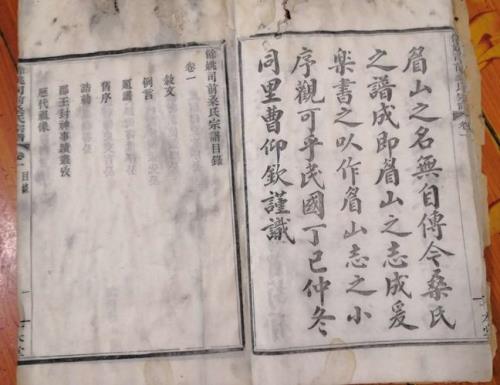 眉山之名無自傳今桑氏
之譜成即眉山之志成爰
樂書之以作眉山志之小
序觀可乎民國丁巳仲冬
同里曹仰欽謹識
餘姚司前桑氏宗譜目錄
卷一
敘文
例言
題講
舊序
誥勅
郡王封神事蹟彙攷
歷代祖像